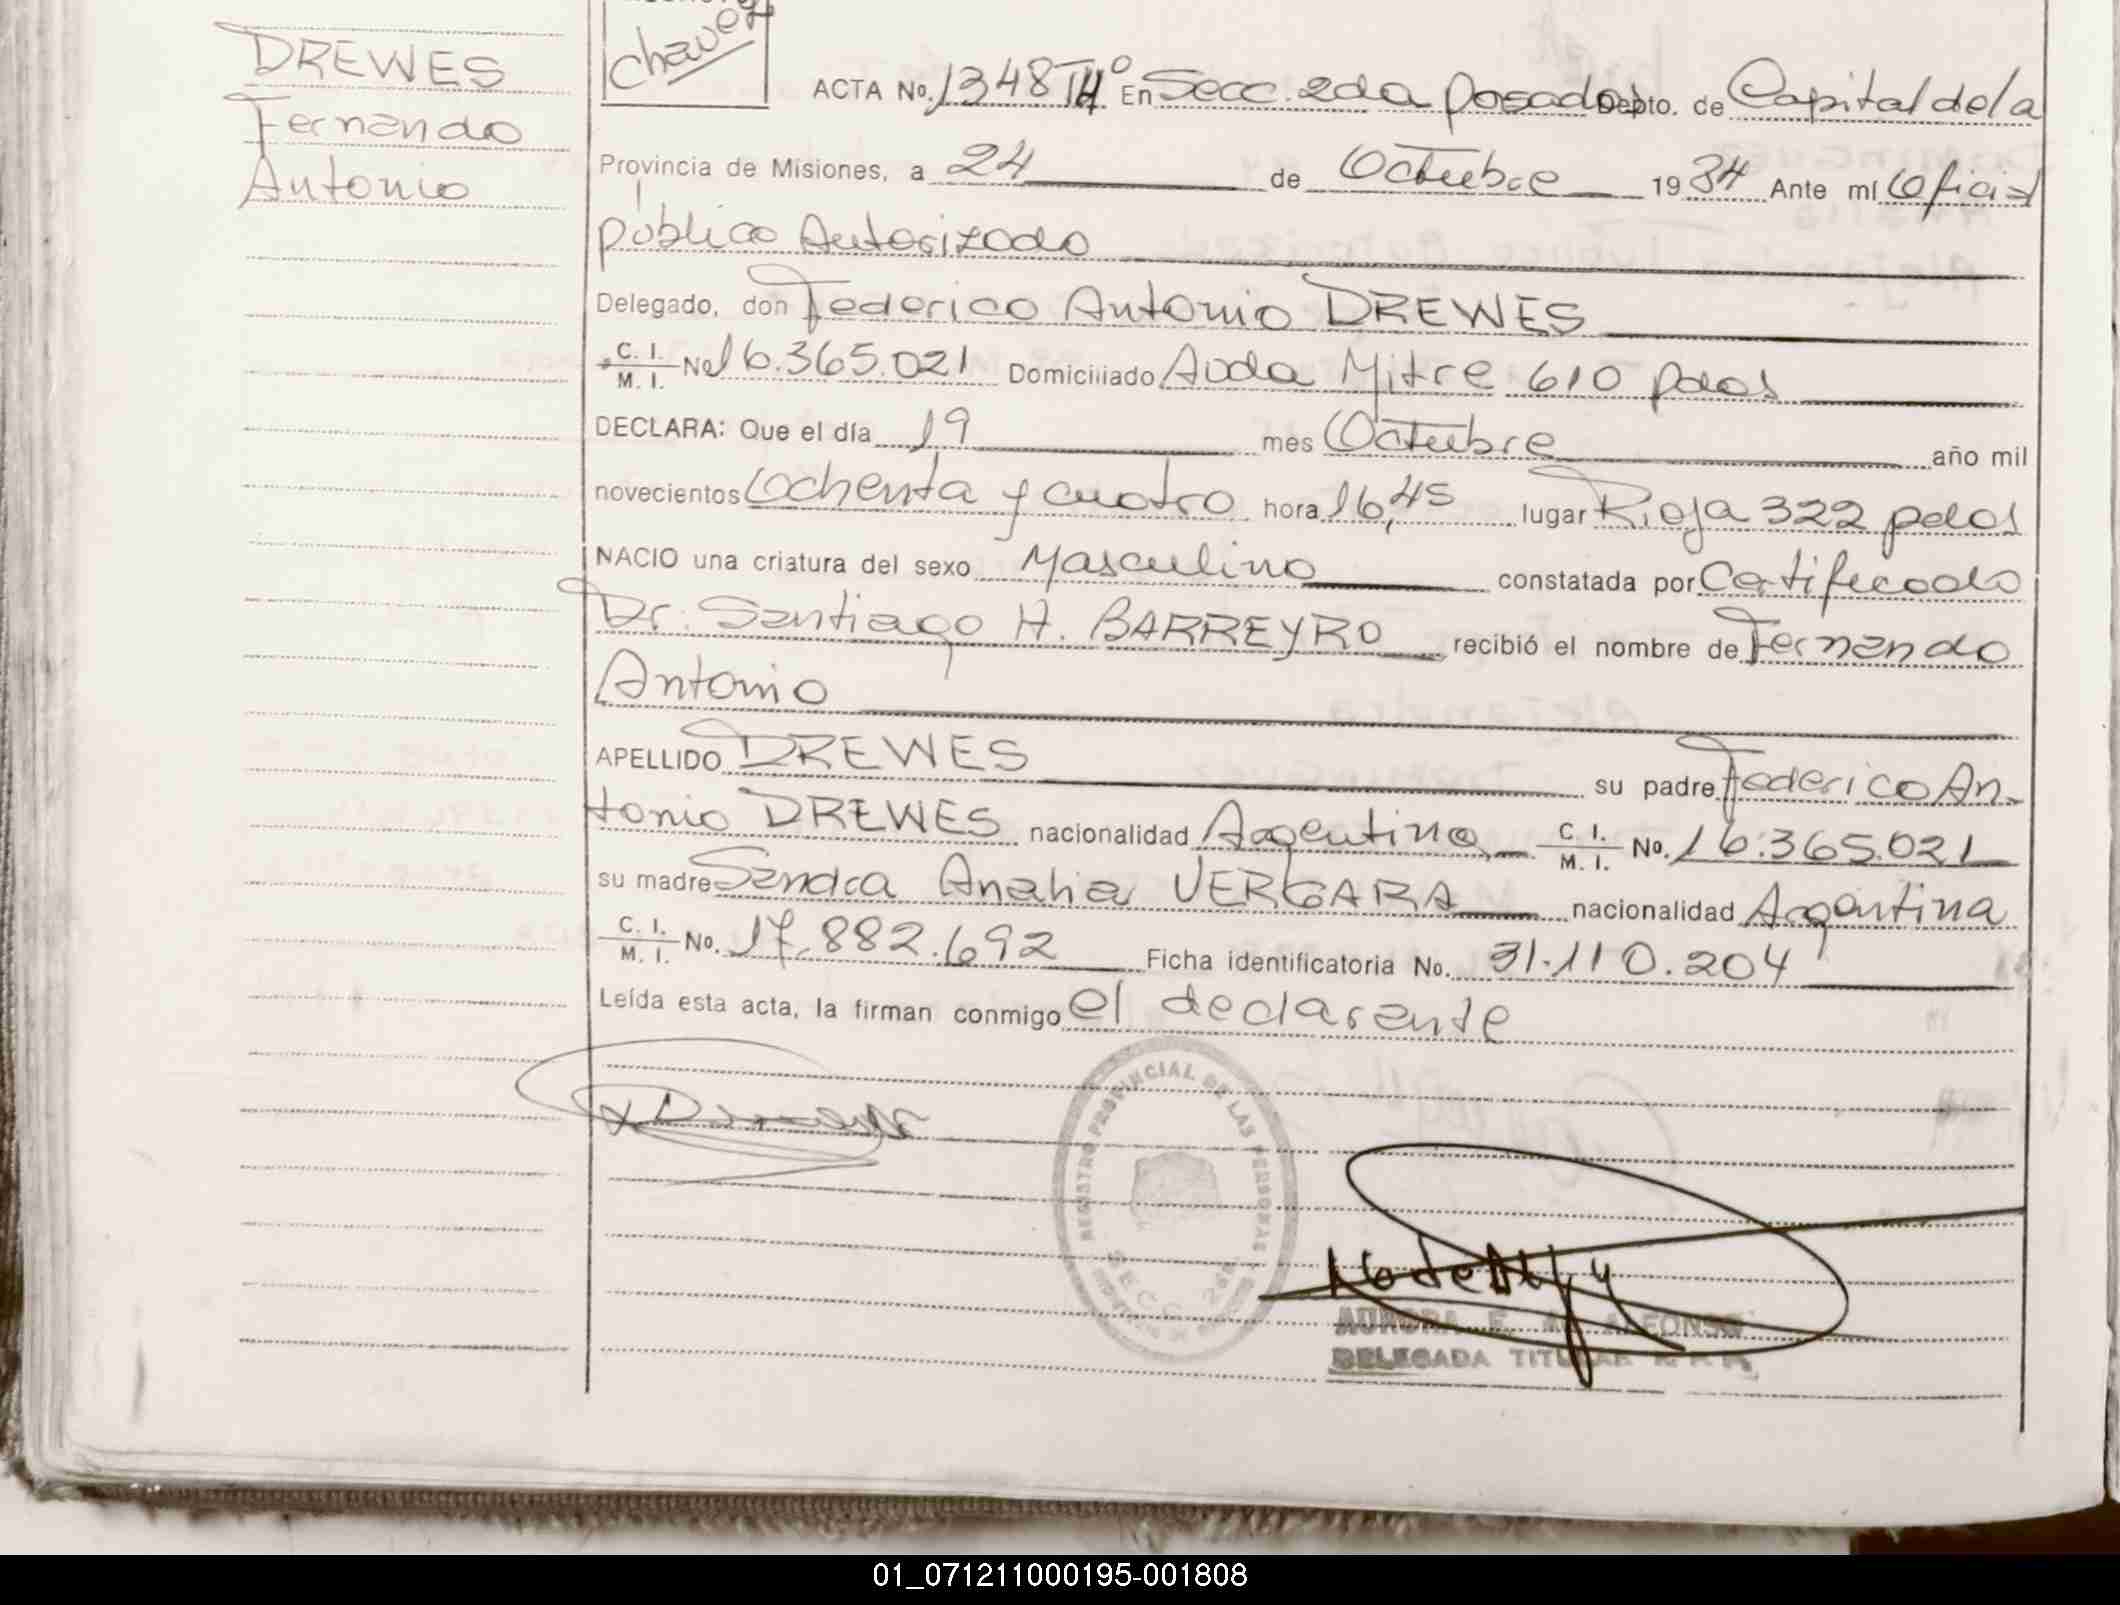 DREWES
Fernando
Antonio
Chavez
ACTA No. 1348 TII° En Secc. 2da Posadas Depto. de Capital de la
Provincia de Misiones, a 24 de Octubre 1984 Ante mí Oficial
público Autorizado
Delegado, don Federico Antonio DREWES
C. I.
M. I. No 16.365.021 Domiciliado Avda Mitre 610 pdas
DECLARA: Que el día 19 mes Octubre año mil
novecientos Ochenta y cuatro hora 16,45 lugar Rioja 322 pdas
NACIO una criatura del sexo Masculino constatada por Certificado
Dr. Santiago H. BARREYRO recibió el nombre de Fernando
Antonio
APELLIDO DREWES su padre Federico An-
tonio DREWES nacionalidad Argentina C. I.
M. I. No. 16.365.021
su madre Sandra Analia VERGARA nacionalidad Argentina
C. I.
M. I. No. 17.882.692 Ficha identificatoria No. 31.110.204
Leída esta acta, la firman conmigo el declarante
REGISTRO PROVINCIAL DE LAS PERSONAS
SECC. 2da
AURORA E. ALFONSO
DELEGADA TITULAR
01_071211000195-001808